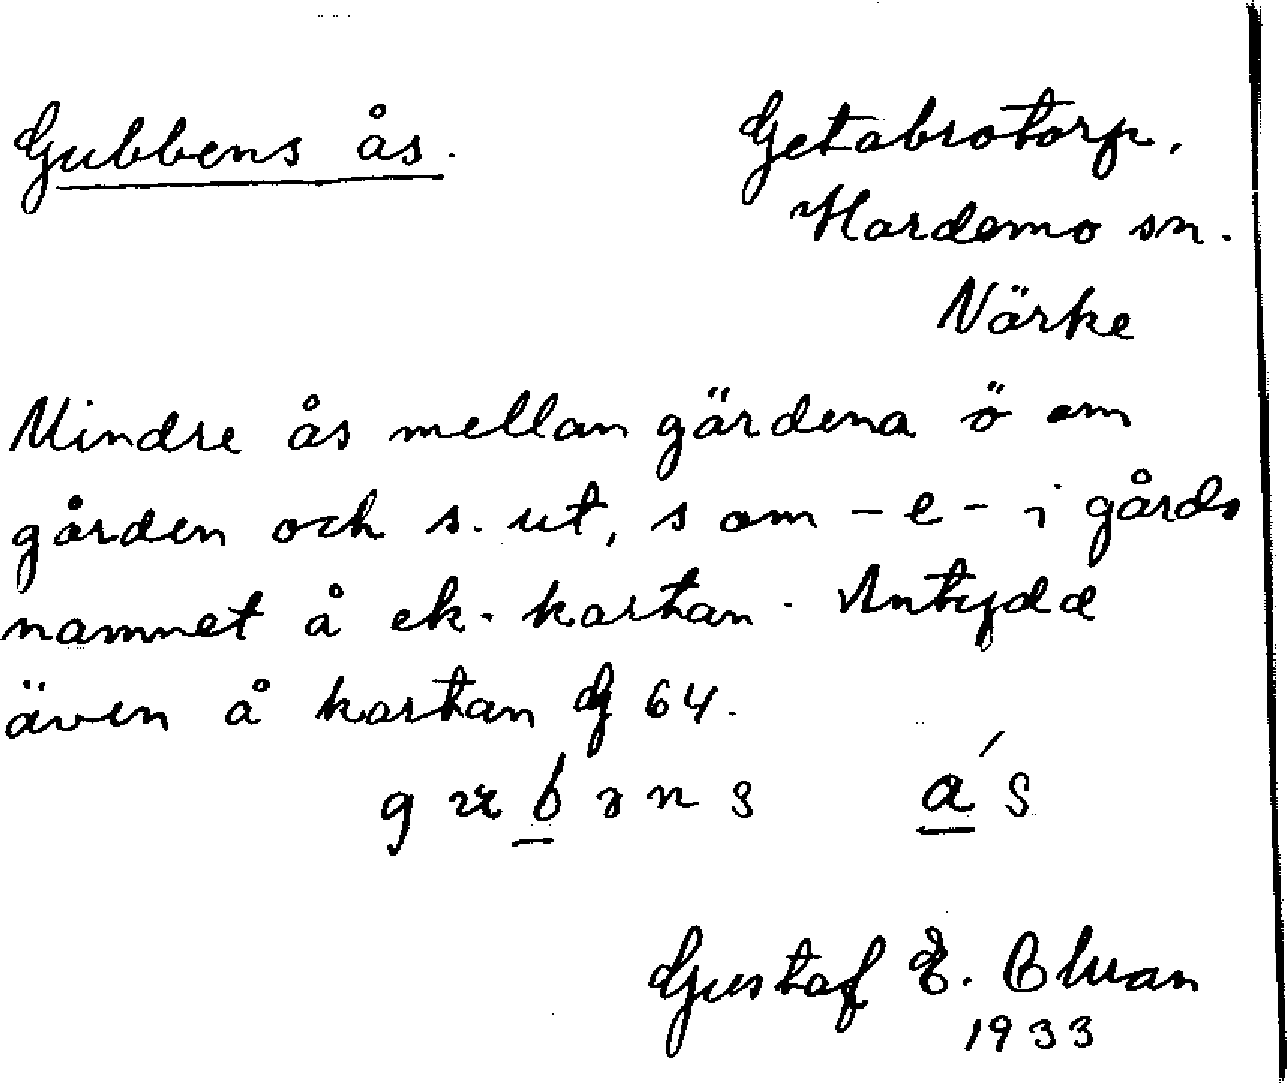 Gubbens ås.
Getabrotorp.
Hardemo sn.
Närke
Mindre ås mellan gärdena ö om
gården och s. ut, s om - e - i gårds
namnet å ek. kartan. Antydd
även å kartan G 64.
ås
Gustaf E.
1933